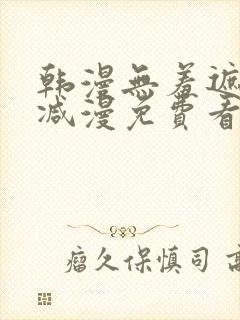 韩漫無羞遮
减漫免費看
瘤久保慎司 高